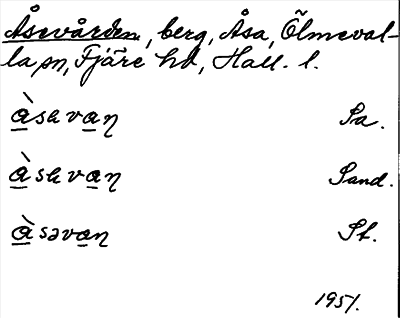 Åsevården, berg, Åsa, Ölmeval-
la sn, Fjäre hd, Hall. l.
à̲sɐva̲ɳ Sa.
à̲sɐva̲ɳ Sand.
à̲səva̲ɳ St.
1951.